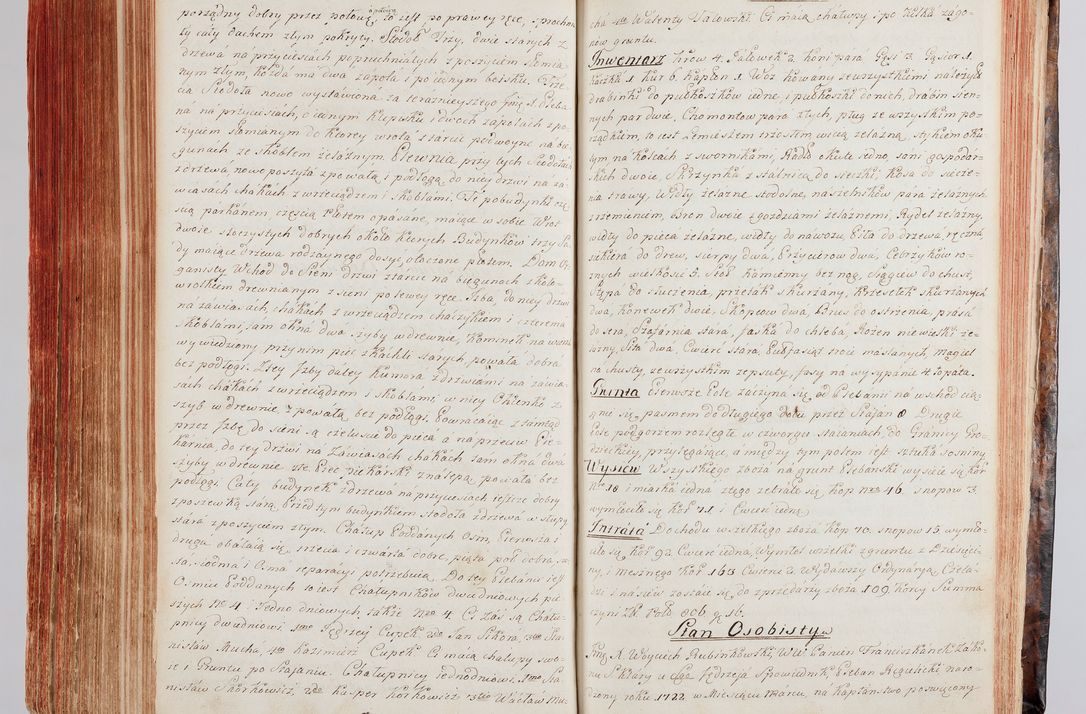 porządny dobry przez połowę, to iest po prawey ręce, z prochow
ty cały dachem złym pokryty. Stodół trzy, dwie starych z
drzewa na przyciesiach popruchniałych z poszyciem słomia-
nym złym, każda ma dwa zapola i po iednym boisku. Trze-
cia Stodoła nowo wystawiona za teraznieyszego Jmci X. Pleba-
na na przyciesiach, o iednym klepisku i dwoch zapolach z po-
szyciem słomianym do ktorey wrota stare podwoyne na bie-
gunach ze skoblem żelaznym. Plewnia przy tych Stodołach
z drzewa nowo postawiona z powałą i podłogą do niey drzwi na za-
wiasach hakach z wrzeciądzem i skoblami. Te pobudynki czę-
ścią parkanem częścią płotem opasane, maiące w sobie Wrot
dwoie stoczystych dobrych około ktorych Budynków trzy Sa-
dy maiące drzewa rodzaynego dosyć, otoczone płotem. Dom Or-
ganisty Wchod do Sieni drzwi starcie na biegunach z koło-
wrotkiem drewnianym z sieni po lewey ręce Izba, do niey drzwi
na zawiasach, hakach z wrzeciądzem chaczykiem i czterema
skoblami, tam okna dwa, szyby w drewnie, Kominek na wierzch
wywiedziony przy nim piec z kachli starych, powała dobra
bez podłogi. Z tey Izby daley Kumora z drzwiami na zawia-
sach hakach z wrzeciądzem i skoblami w niey Okienko z
szyb w drewnie z powałą bez podłogi. Powracaiąc z tamtąd
przez Izbę do sieni są czeluscie do pieca a na przeciw Pie-
karnia, do tey drzwi na Zawiasach hakach tam okna dwa
szyby w drewnie Piec piekarski z nalepą powała bez
podłogi Cały budynek z drzewa na przyciesiach iest dobry
z poszewką starą. Przed tym budynkiem stodoła z drzewa w słupy
stara z poszyciem złym. Chałup Poddanych Osm, Pierwsza i
druga obalaią się, trzecia i czwarta dobre, piąta pół dobra, szo-
sta, siodma i osma reparacyi potrzebuią. Do tey Plebani iest
Osmiu Poddanych to iest Chałupników dwudniowych pie-
szych Nro 4 i Jedno dniowych także Nro 4. Ci zaś są Chału-
pnicy dwudniowi 1mo Jędrzey Cupek 2do Jan Sikora, 3tio Sta-
nisław Mucha, 4to Kazimierz Cupek Ci maią chałupy swo-
ie i Gruntu po Staianiu. Chałupnicy jednodniowi. 1mo Sta-
nisław Skorkowicz, 2do Kasper Korkowicz 3tio Wacław Mu-
cha 4to Walenty Jałowski. Ci maią chałupy i po kilka zago-
nów gruntu.
Inwentarz krów 4. Jałowek 2. koni para Gęsi 3. Gąsior 1.
kaczka 1. kur 6. kapłon 1. Wóz kowany ze wszystkiemi należyto
drabinki do pułkoszków iedne, i pułkoszki do nich, drabin sien-
nych par dwie, Chomontow para złych, pług ze wszystkim po-
rządkiem, to iest lemieszem trzosłem wicią żelazną, stykiem oku-
tym, na kołcach z sworniami Radło okute iedno, sani gospodar-
kich dwoie, Skrzynka z stalnicą do sieczki, kosa do siecze-
nia trawy, Widły żelazne stodolne, naszelników para żelaznych
z rzemieniem, Bron dwoie z gozdziami żelaznemi, Rydel żelazny,
widły do pieca żelazne, widły do nawozu, Piła do drzewa ręczna,
siekiera do drew, sierpy dwa, Przycierow dwa, Cebrzyków ro-
żnych wielkości 5. Stoł kamienny bez nog, Sągiew do chust,
Stępa do tłuczenia, przetak skurzany, krzesełek skurzanych
dwa, konewek dwie, Skopcow dwa, Brus do ostrzenia, prasa
do sera, Szafarnia stara, Jaska do chleba, Rożen niewielki że-
lazny, Sita dwa, Cwierć stara, Pułhasiąt troie maślanych, magiel
na chusty, ze wszystkim zepsuty, fasy na wysypanie kłopata.
Grunta Pierwsze Pole zaczyna się od Plebanii na wschod cią-
gnie się pasmem do długiego dołu przez Staian 8 Drugie
Pole podgorzem rozległe w czworgu staianiach, do Granicy Gro-
dzieckiey, przylegaiące, a między tym polem iest sztuka sosniny.
Wysiew Wszystkiego zboża na grunt Plebański wysieie się kor:
Nro 18 i miarka iedna z tego zebrało się kop nro 46. snopow 3.
wymłociło się kor: 71 i Cwierć iedną
Intrata Dochodu wszelkiego zboża kop 70. snopow 15 wymłó-
ciło się kor: 92 Cwierć iedna, Wymłot wszelki z gruntu z Dziesięci-
ny, i mesznego Kor: 163 Cwierci 2. Wydawszy Ordynaryą Czela-
dzi i na siew zostaie się do sprzedaży zboża 109. ktory Summa
czyni Zł: Pols: 906 gr 16.
Stan Osobisty
Jmć X. Woyciech Bubinkowski WW Panien Franciszkanek Zako-
nu S. Klary u S. Jędrzeia Spowiednik, Pleban Regulicki naro-
dzony roku 1722 w Miesiącu Marcu, na kapłanstwo poswięcony